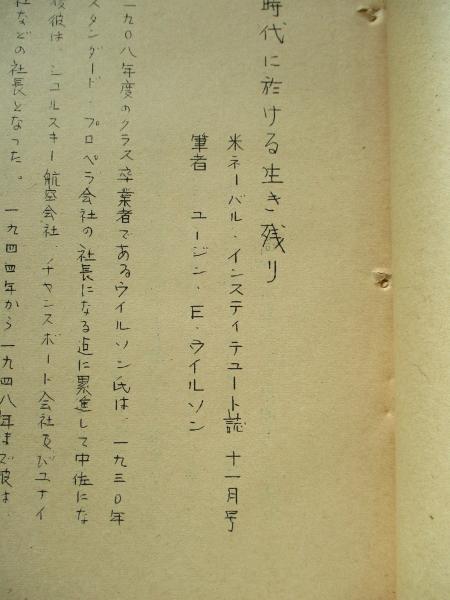 時代に於ける生き残り
米ネーバル・インスティテュート誌 十一月号
筆者 ユージン・E・ウイルソン
一九〇八年度のクラス卒業者であるウイルソン氏は、一九三〇年
スタンダード・プロペラ会社の社長になる迄に累進して中佐にな
後彼は、シコルスキー航空会社、チャンスボート会社及びユナイ
社などの社長となった。一九四四年から一九四八年まで彼は、